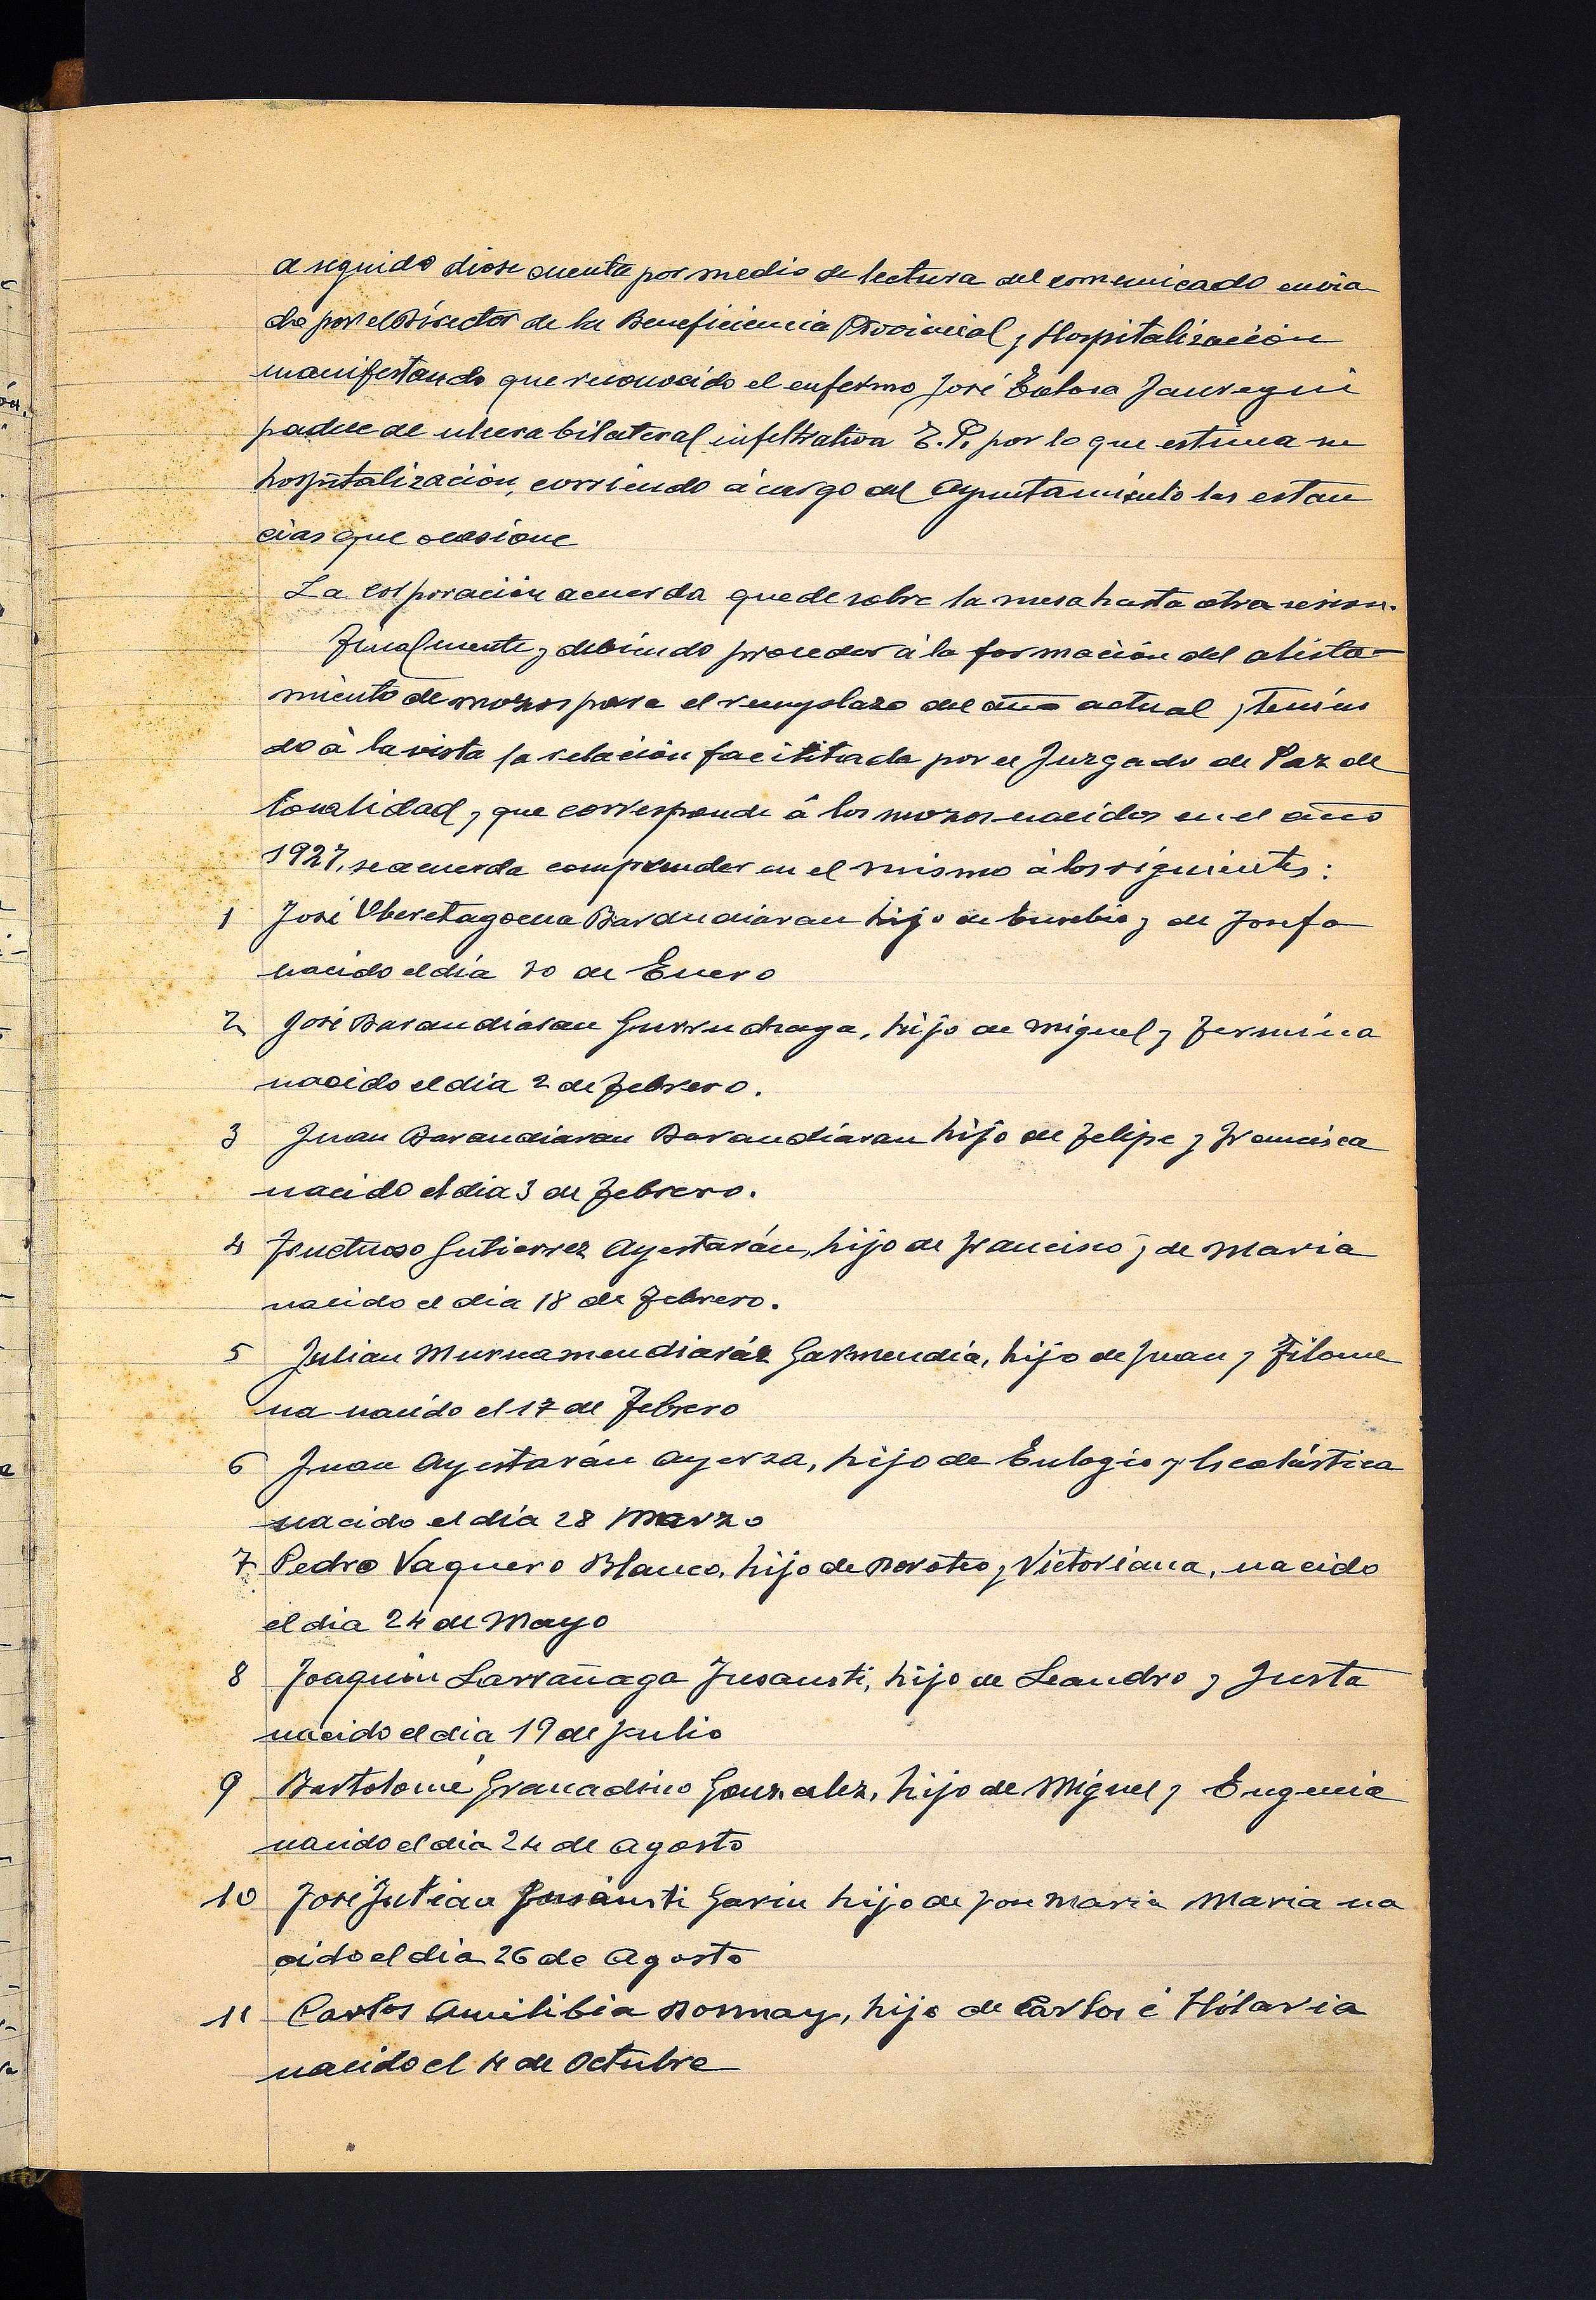 a seguido diose cuenta por medio de lectura del comunicado envia
do por el Director de la Beneficiencia Provincial y Hospitalización
manifestando que reconocido el enfermo José Eolosa Jauregui
padece de ulcera bilateral infeltrativa T.P. por lo que estima su
hospitalización, corriendo á cargo del Ayuntamiento las estan
cias que ocasione
La corporación acuerda quede sobre la mesa hasta otra sesion.
Finalmente y debiendo proceder á la formación del alista-
miento de mozos para el remplazo del año actual y tenien
do á la vista la relación facilitada por el Juzgado de Paz de
localidad y que corresponde á los mozos nacidos en el año
1927, se acuerda comprender en el mismo á los siguientes:
1 José Uberetagoena Bardudiaran hijo de Eusebio y de Josefa
nacido el día 20 de Enero
2 José Barandiaran Gurruchaga, hijo de Miguel y Fermina
nacido el día 2 de Febrero.
3 Juan Barandiaran Barandiaran hijo de Felipe y Francisca
nacido el dia 3 de Febrero.
4 Fructuoso Gutierrez Ayestarán, hijo de Francisco y de Maria
nacido el dia 18 de Febrero.
5 Julian Murnamendiaráz Garmendia, hijo de Juan y Filome
na nacido el 17 de Febrero
6 Juan Ayestarán Ayerza, hijo de Eulogio y Escolástica
nacido el día 28 Marzo
7 Pedro Vaquero Blanco, hijo de Doroteo y Victoriana, nacido
el dia 24 de Mayo
8 Joaquin Larrañaga Jusausti, hijo de Leandro y Justa
nacido el dia 19 de Julio
9 Bartolomé Granadino Gonzalez, hijo de Miguel y Eugenia
nacido el dia 24 de Agosto
10 José Julian Jusausti Garin hijo de Jose Maria Maria na
cido el dia 26 de Agosto
11 Carlos Amilibia Dornay, hijo de Carlos é Hilaria
nacido el 4 de Octubre